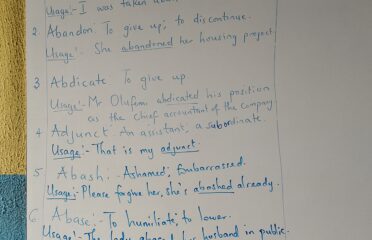 Usage:- I was taken
2 Abandon: To give up; to discontinue.
Usage:- She abandoned her housing project.
3 Abdicate To give up
Usage:- Mr Olufemi abdicated his position
as the chief accountant of the company
4 Adjunct. An assistant, a subordinate.
Usage:- That is my adjunct.
5 Abash:- Ashamed, Embarrassed.
Usage:- Please forgive her, she's abashed already.
6 Abase:- To humiliate, to lower.
Usage:- The lady her husband in public.